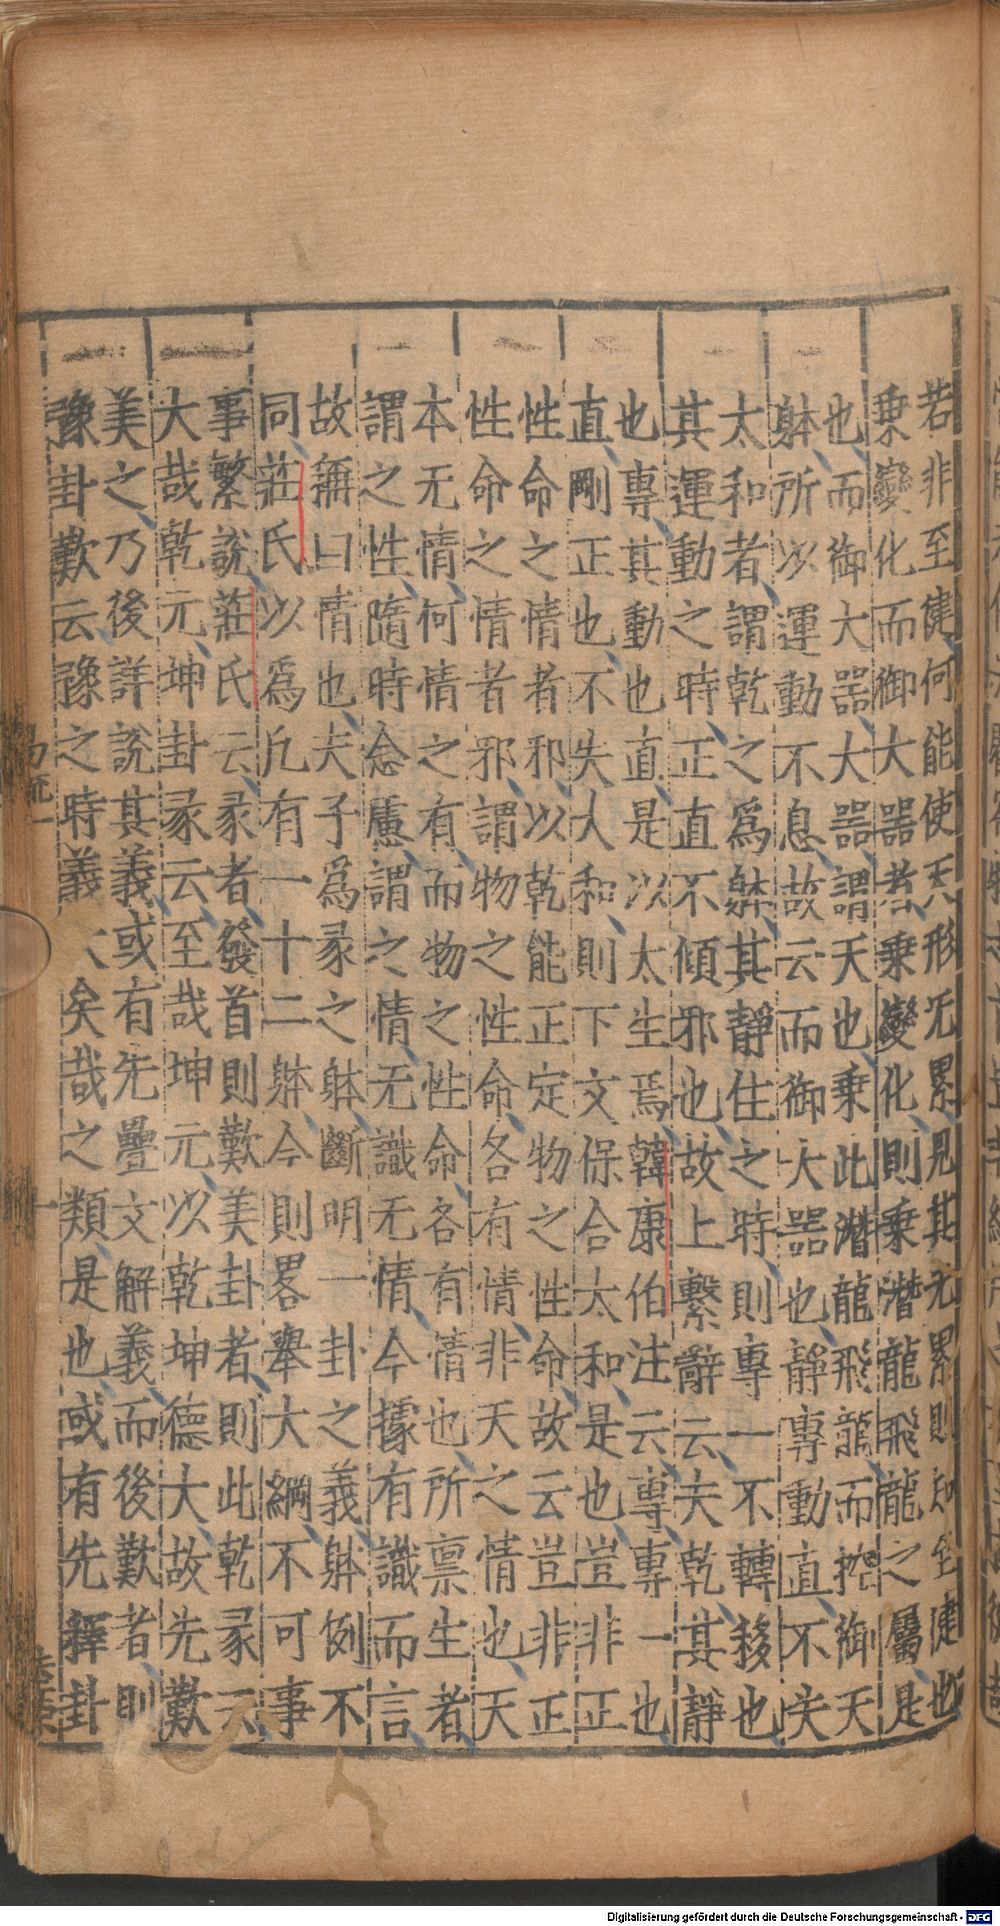 若非至健何能使天形无累見其无累則知至健也
乗變化而御大噐者乗變化則乗潛龍飛龍之屬是
也而御大噐大噐謂天也乗此潛龍飛龍而控御天
躰所以運動不息故云而御大噐也靜專動直不失
太和者謂乾之爲躰其靜住之時則專一不轉移也
其運動之時正直不傾邪也故上繫辭云夫乾其靜
也專其動也直是以太生焉韓康伯注云專專一也
直剛正也不失大和則下文保合太和是也豈非正
性命之情者邪以乾能正定物之性命故云豈非正
性命之情者邪謂物之性命各有情非天之情也天
本无情何情之有而物之性命各有情也所禀生者
謂之性隨時念慮謂之情无識无情今據有識而言
故稱曰情也夫子爲彖之躰斷明一卦之義躰例不
同莊氏以爲凢有一十二躰今則畧舉大綱不可事
事繁說莊氏云彖者發首則歎美卦者則此乾彖云
大哉乾元坤卦彖云至哉坤元以乾坤德大故先歎
美之乃後詳說其義或有先疊文解義而後歎者則
豫卦歎云豫之時義大矣哉之類是也或有先釋卦
易疏一
Digitalisierung gefördert durch die Deutsche Forschungsgemeinschaft - DFG